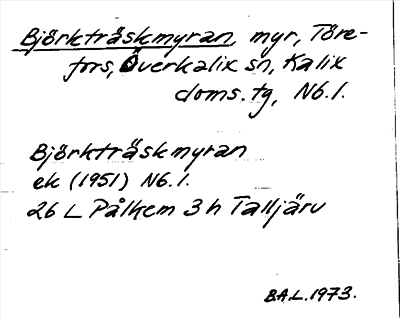 Björkträskmyran, myr, Töre-
fors, Överkalix sn, Kalix
doms. tg, Nb.l.
Björkträskmyran
ek (1951) Nb.l.
26 L Pålkem 3 h Talljärv
B.A.L. 1973.